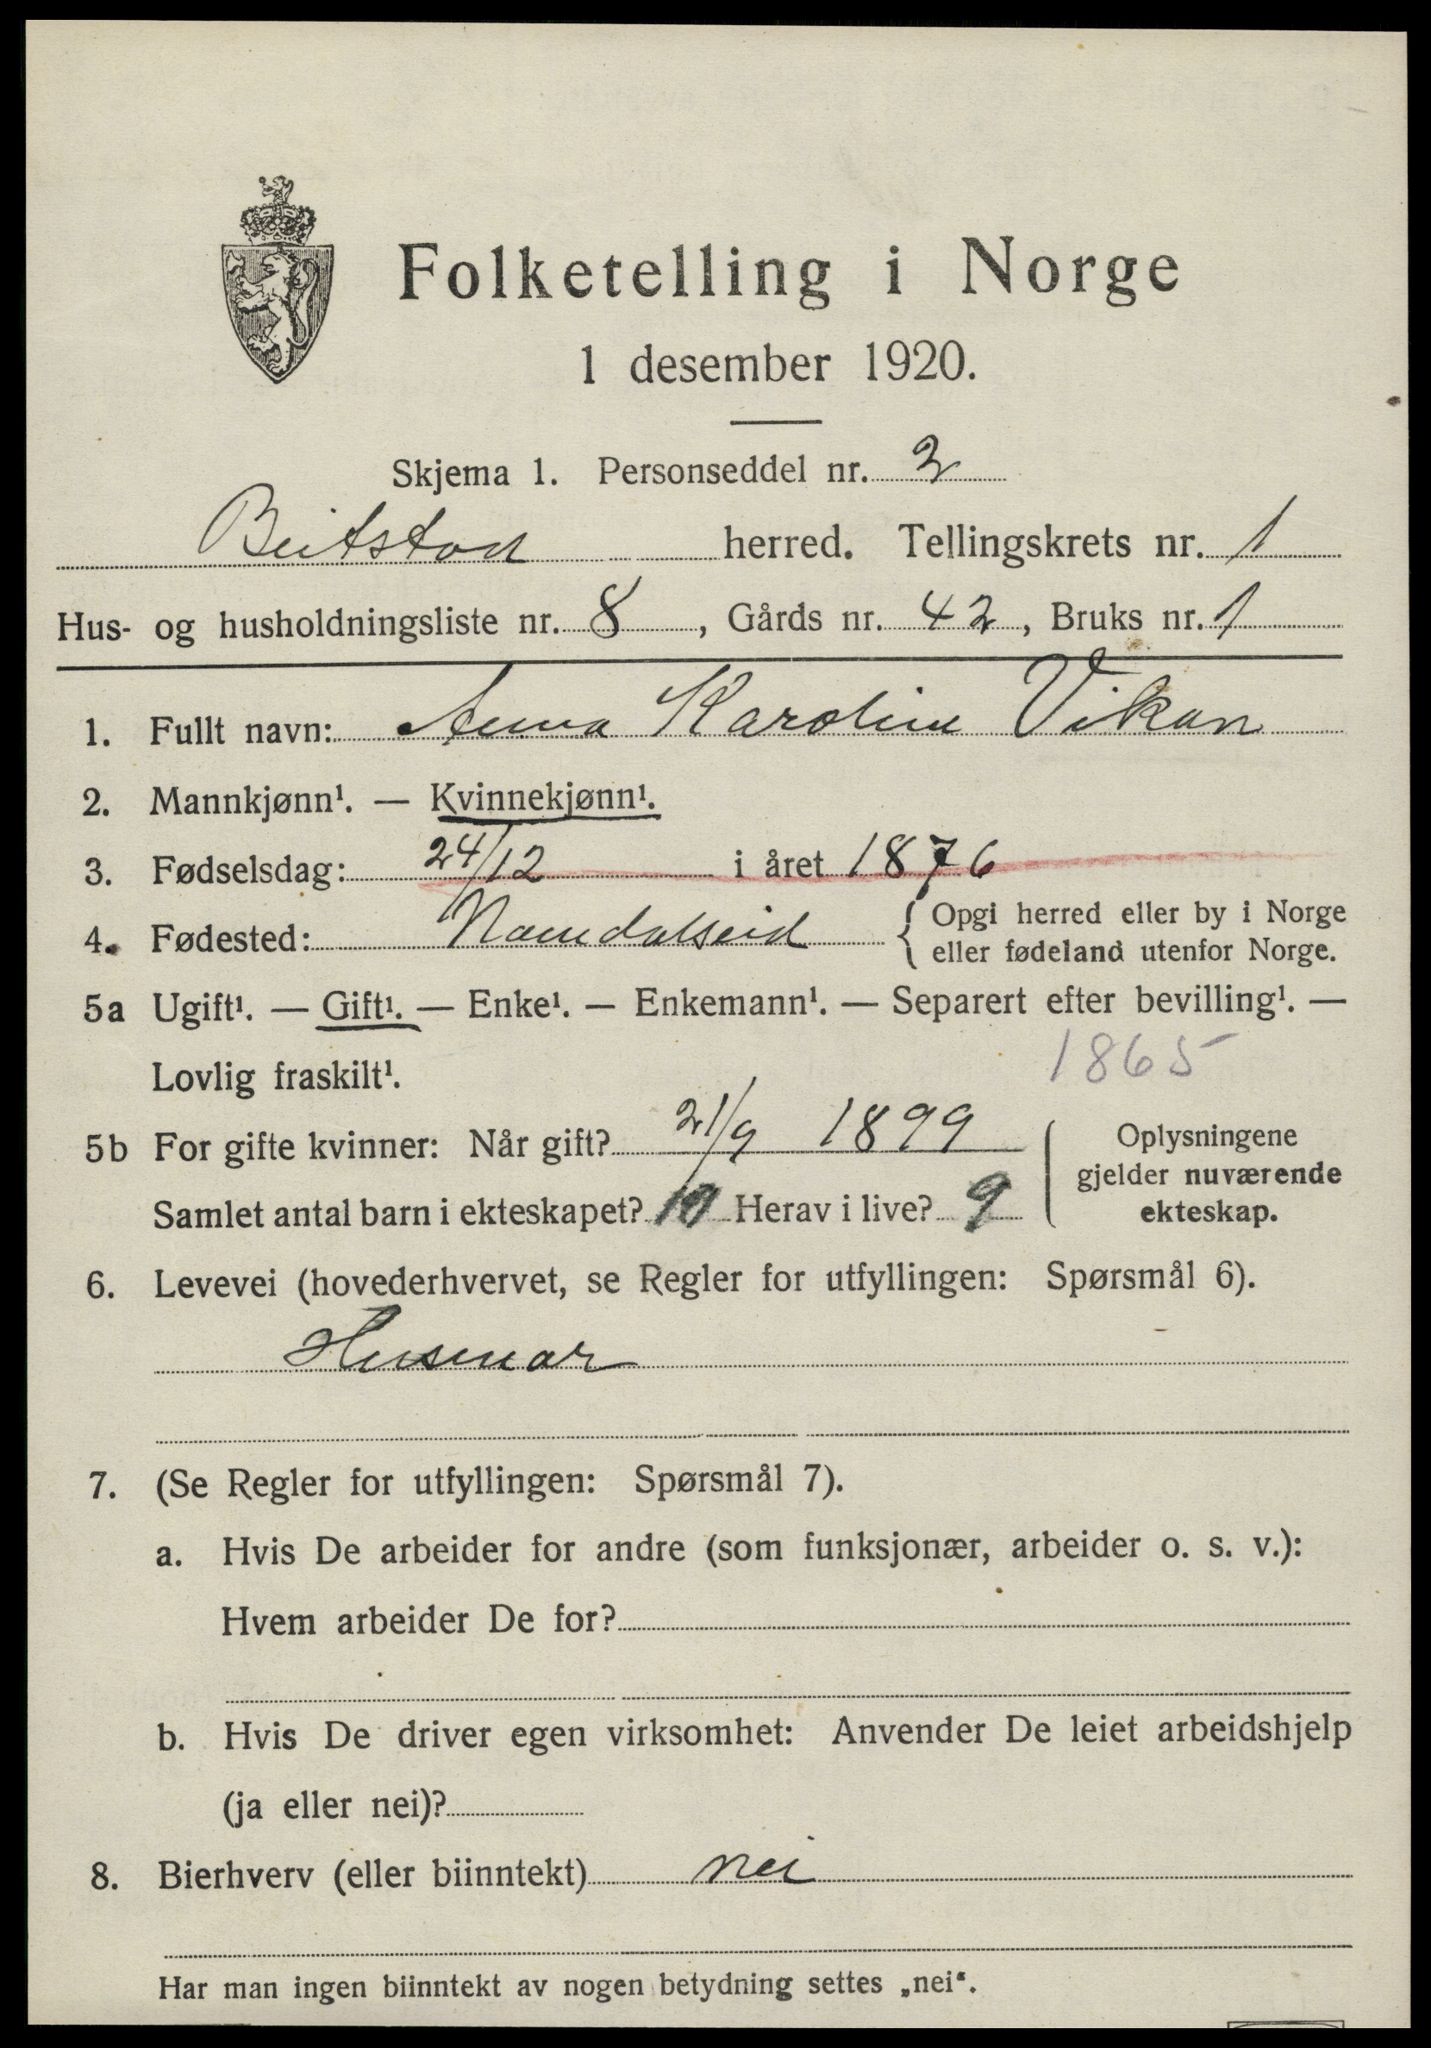 Folketelling i Norge
1 desember 1920.
Skjema 1. Personseddel nr. 2
Beitstad herred. Tellingskrets nr. 1
Hus- og husholdningsliste nr. 8, Gårds nr. 42, Bruks nr. 1
1. Fullt navn: Anna Karoline Vikan
2. Mannkjønn¹. — Kvinnekjønn¹.
3. Fødselsdag: 24/12 i året 1876
4. Fødested: Namdalseid { Opgi herred eller by i Norge
eller fødeland utenfor Norge.
5a Ugift¹. — Gift¹. — Enke¹. — Enkemann¹. — Separert efter bevilling¹. —
Lovlig fraskilt¹. 1865
5b For gifte kvinner: Når gift? 21/9 1899
Samlet antal barn i ekteskapet? 10 Herav i live? 9
{ Oplysningene
gjelder nuværende
ekteskap.
6. Levevei (hovederhvervet, se Regler for utfyllingen: Spørsmål 6).
Husmor
7. (Se Regler for utfyllingen: Spørsmål 7).
a. Hvis De arbeider for andre (som funksjonær, arbeider o. s. v.):
Hvem arbeider De for?
b. Hvis De driver egen virksomhet: Anvender De leiet arbeidshjelp
(ja eller nei)?
8. Bierhverv (eller biinntekt) nei
Har man ingen biinntekt av nogen betydning settes „nei“.